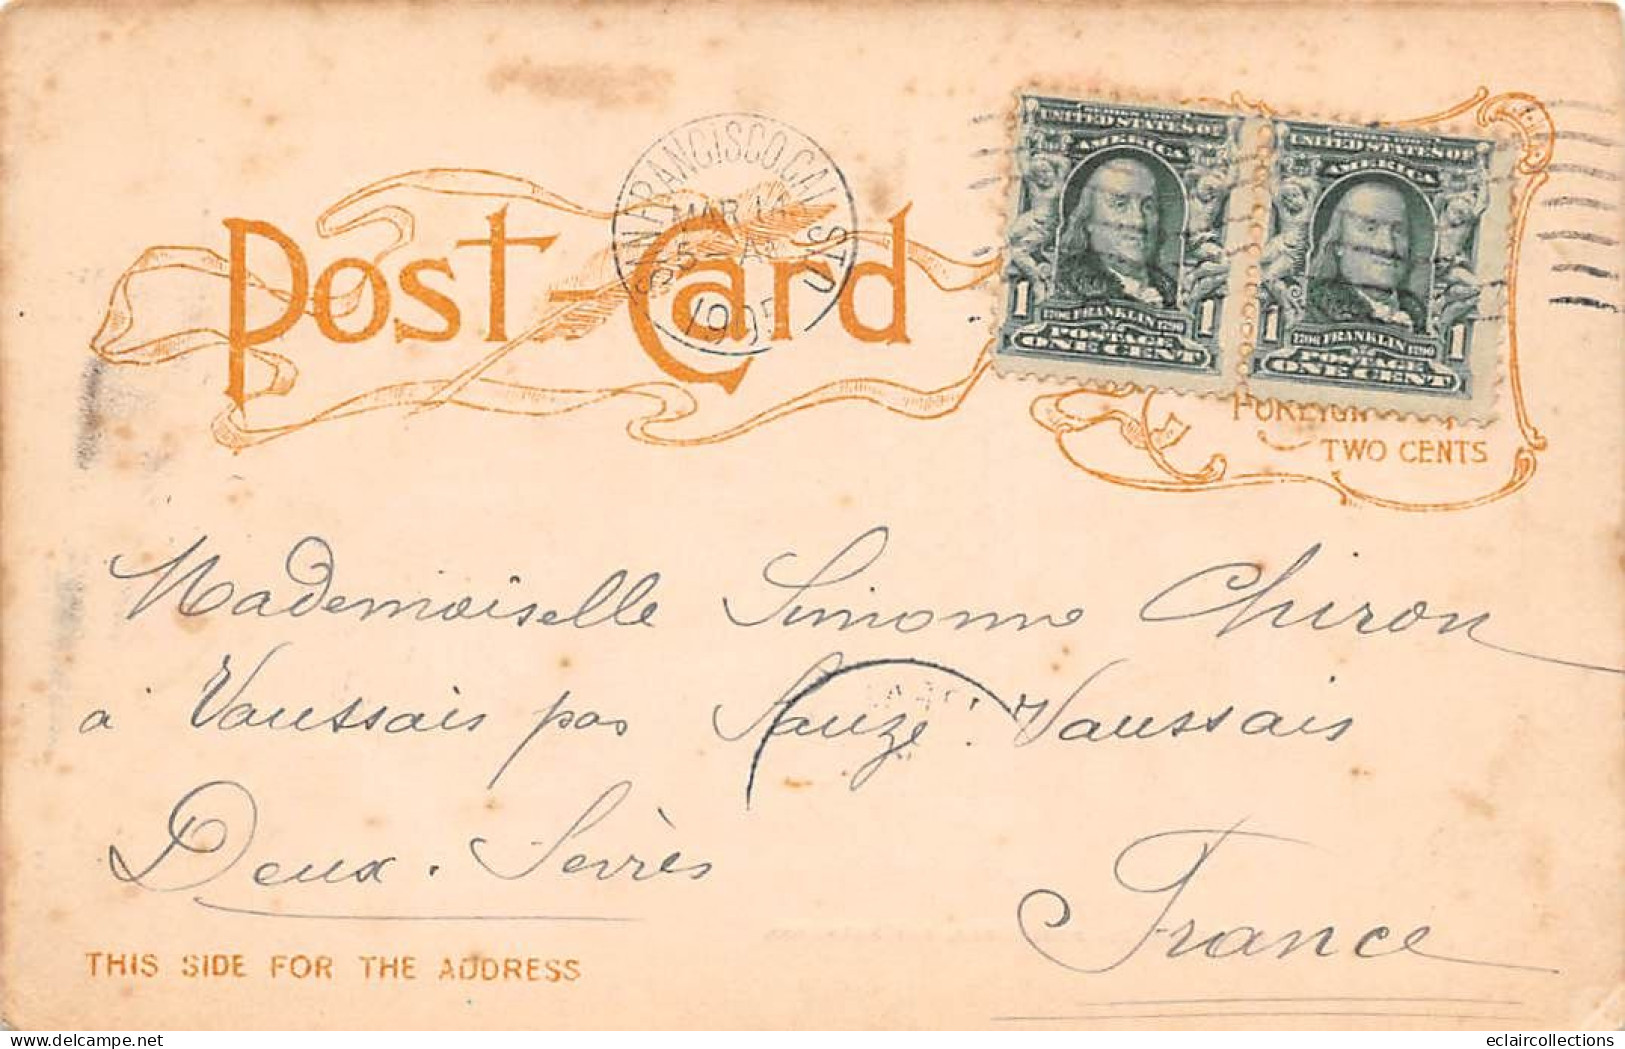 Post-Card
SAN FRANCISCO, CAL. STA. D
MAR 14
1905
UNITED STATES OF
AMERICA
1706 FRANKLIN 1790
1 1
POSTAGE
ONE CENT
UNITED STATES OF
AMERICA
1706 FRANKLIN 1790
1 1
POSTAGE
ONE CENT
FOREIGN
TWO CENTS
Mademoiselle Simonne Chiron
à Vaussais par Sauzé. Vaussais
Deux. Sèvrès
France
THIS SIDE FOR THE ADDRESS
eclaircollections